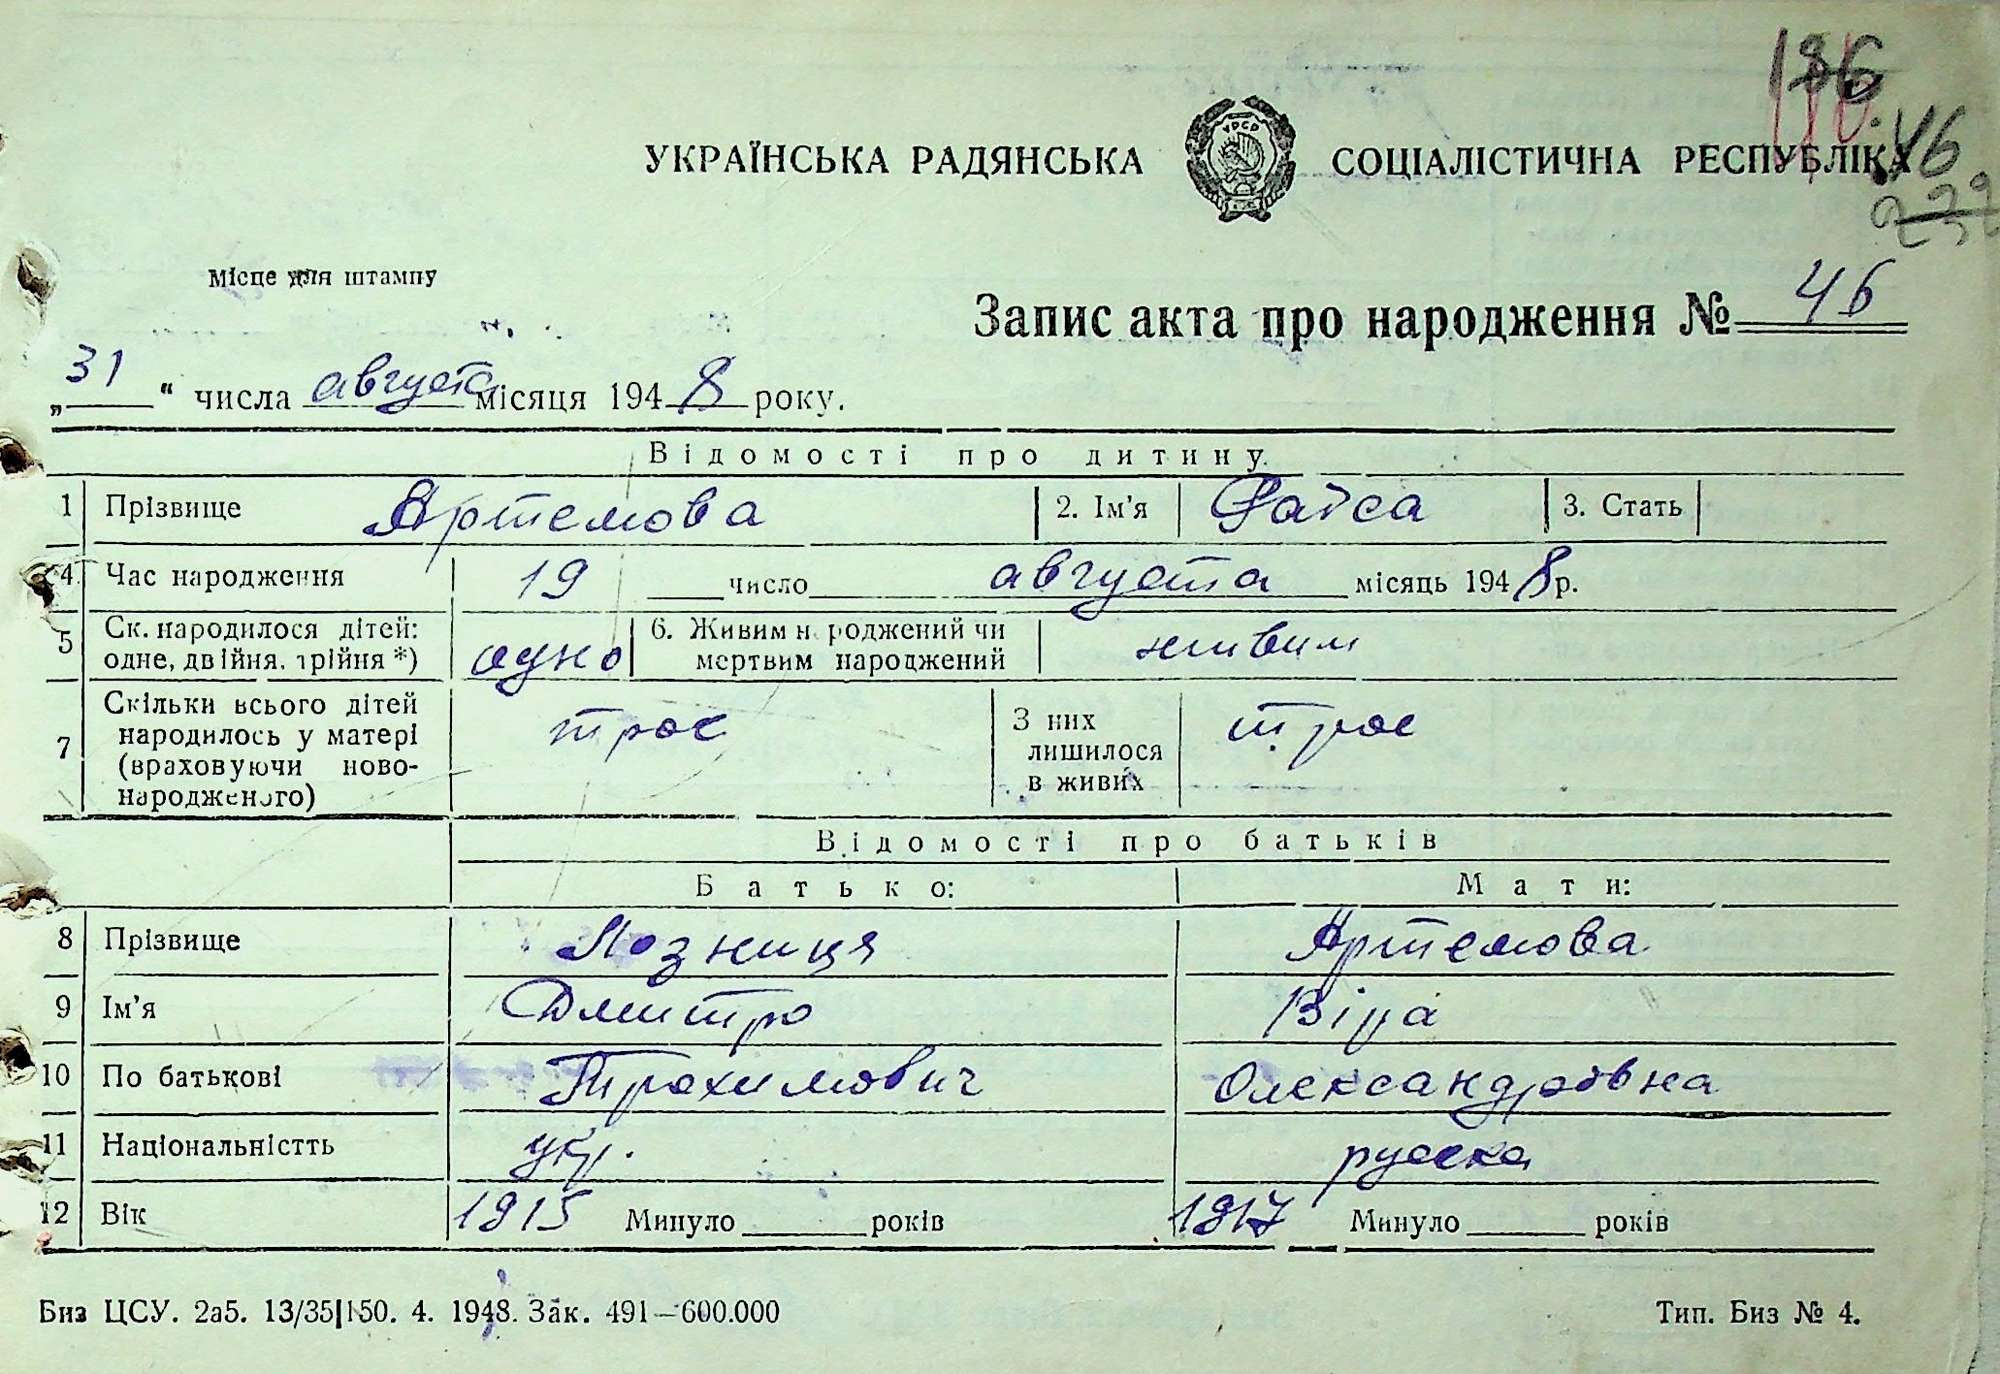 186
46
УКРАЇНСЬКА РАДЯНСЬКА УРСР СОЦІАЛІСТИЧНА РЕСПУБЛІКА
Місце для штампу
Запис акта про народження № 46
„31“ числа августа місяця 1948 року.
Відомості про дитину
1 Прізвище Артемова 2. Ім'я Раїса 3. Стать
4 Час народження 19 число августа місяць 1948 р.
5 Ск. народилося дітей: одно 6. Живим народжений чи живим
одне, двійня, трійня *) мертвим народжений
7 Скільки всього дітей троє З них троє
народилось у матері лишилося
(враховуючи ново- в живих
народженого)
Відомості про батьків
Батько: Мати:
8 Прізвище Лозниця Артемова
9 Ім'я Дмитро Віра
10 По батькові Трохимович Олександровна
11 Національність укр. русска
12 Вік 1915 Минуло років 1917 Минуло років
Биз ЦСУ. 2а5. 13/35|150. 4. 1948. Зак. 491—600.000 Тип. Биз № 4.